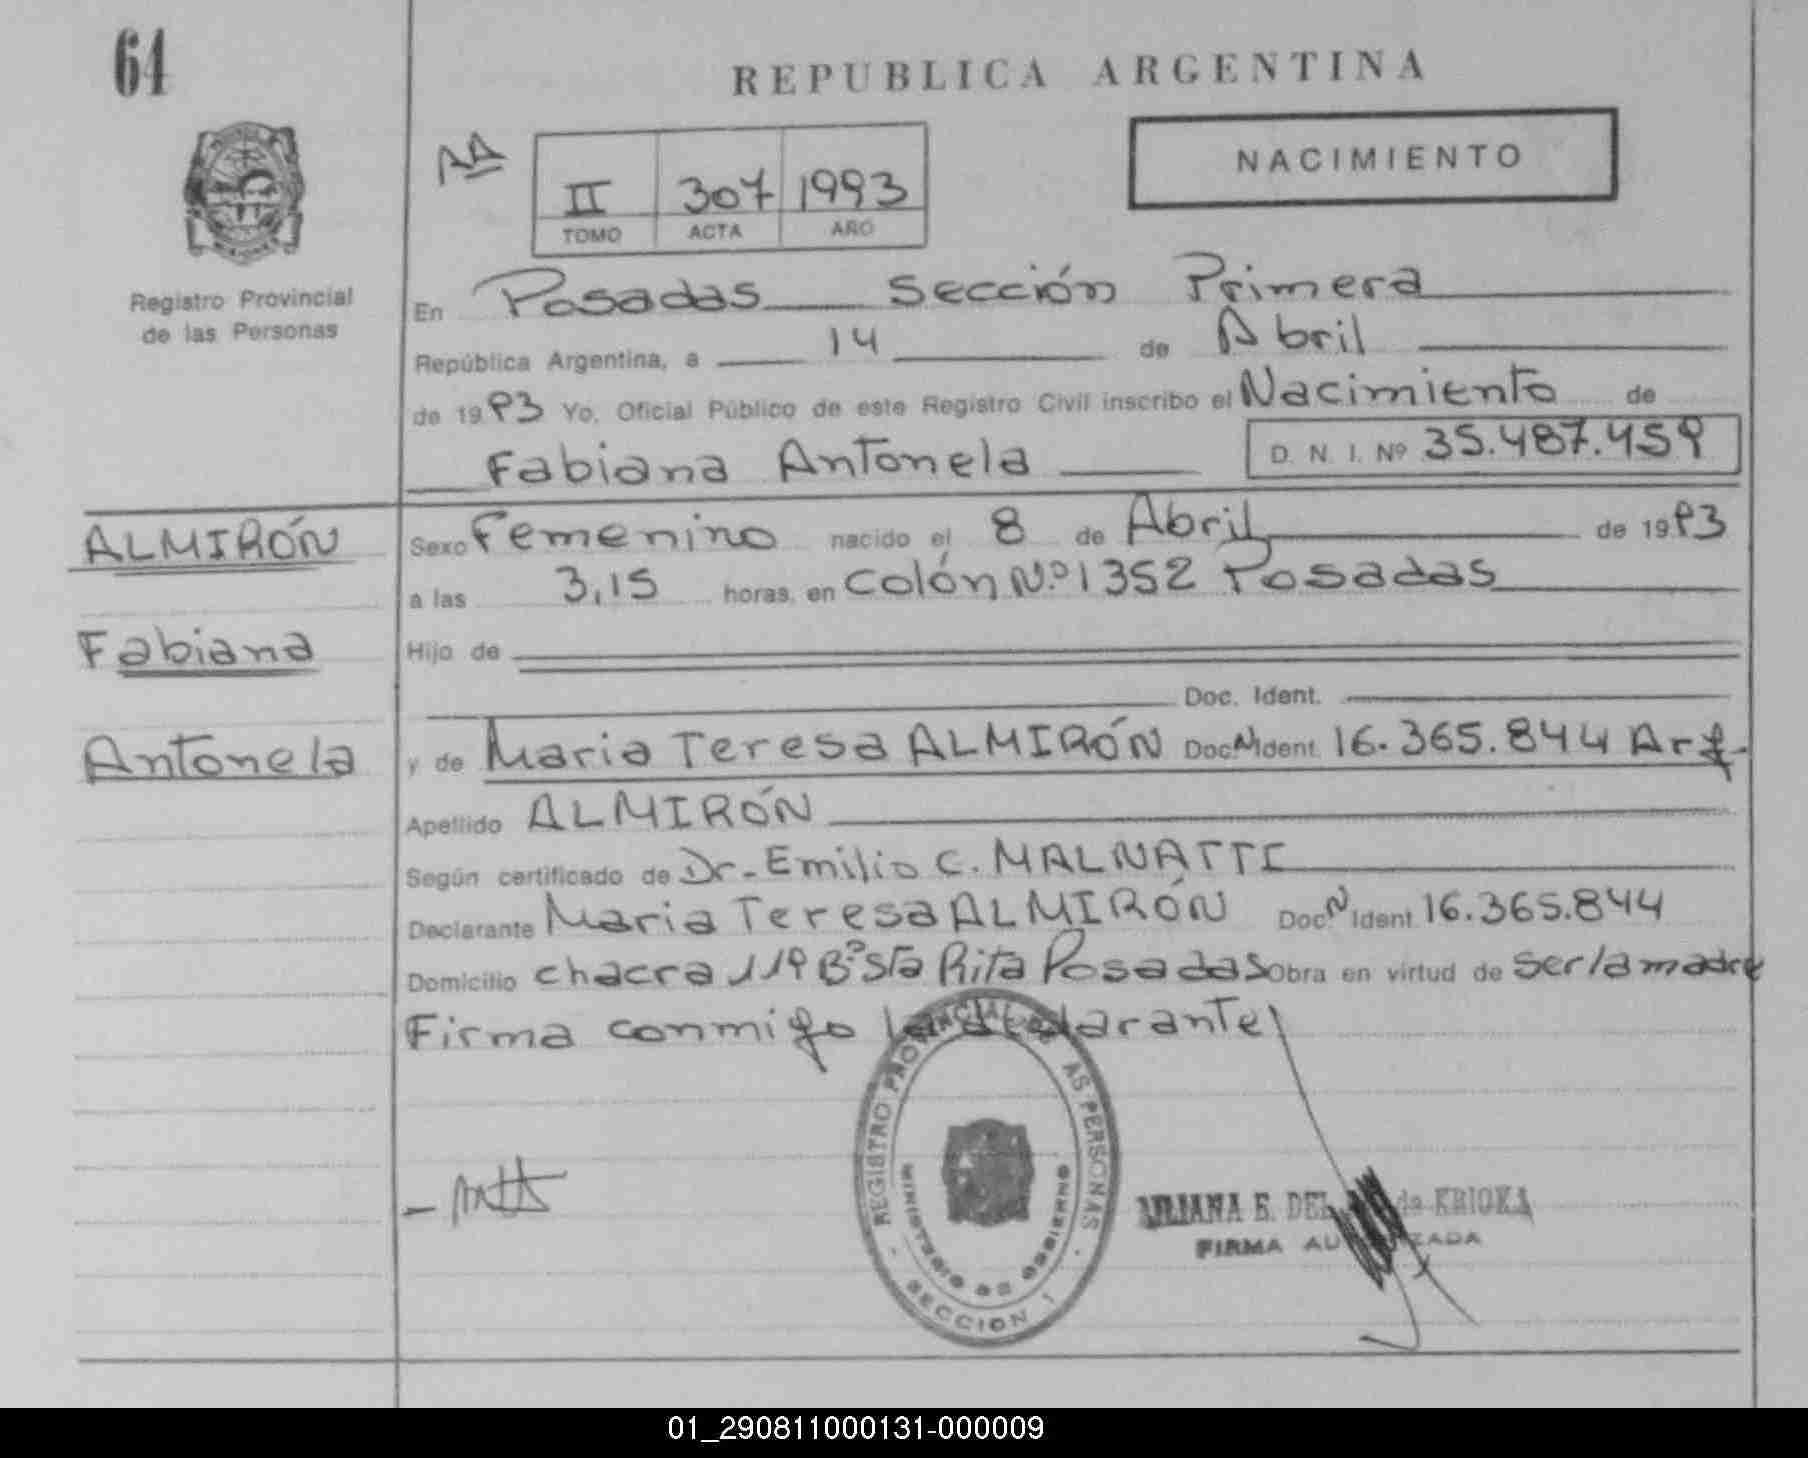 64
REPUBLICA ARGENTINA
NACIMIENTO
AA
II 307 1993
TOMO ACTA AÑO
Registro Provincial
de las Personas
En Posadas sección Primera
República Argentina, a 14 de Abril
de 1993 Yo, Oficial Público de este Registro Civil inscribo el Nacimiento de
Fabiana Antonela D. N. I. Nº 35.487.459
ALMIRÓN
Fabiana
Antonela
Sexo Femenino nacido el 8 de Abril de 1993
a las 3,15 horas, en Colón N.º 1352 Posadas
Hijo de
Doc. Ident.
y de Maria Teresa ALMIRÓN Doc. N Ident. 16.365.844 Arg.
Apellido ALMIRÓN
Según certificado de Dr. Emilio C. MALNATTI
Declarante Maria Teresa ALMIRÓN Doc. N Ident. 16.365.844
Domicilio chacra 119 Bº Sta Rita Posadas Obra en virtud de ser la madre
Firma conmigo la declarante
REGISTRO PROVINCIAL DE LAS PERSONAS
MINISTERIO DE GOBIERNO
SECCION 1
E. DEL de KRIOKA
FIRMA AUTORIZADA
01_290811000131-000009